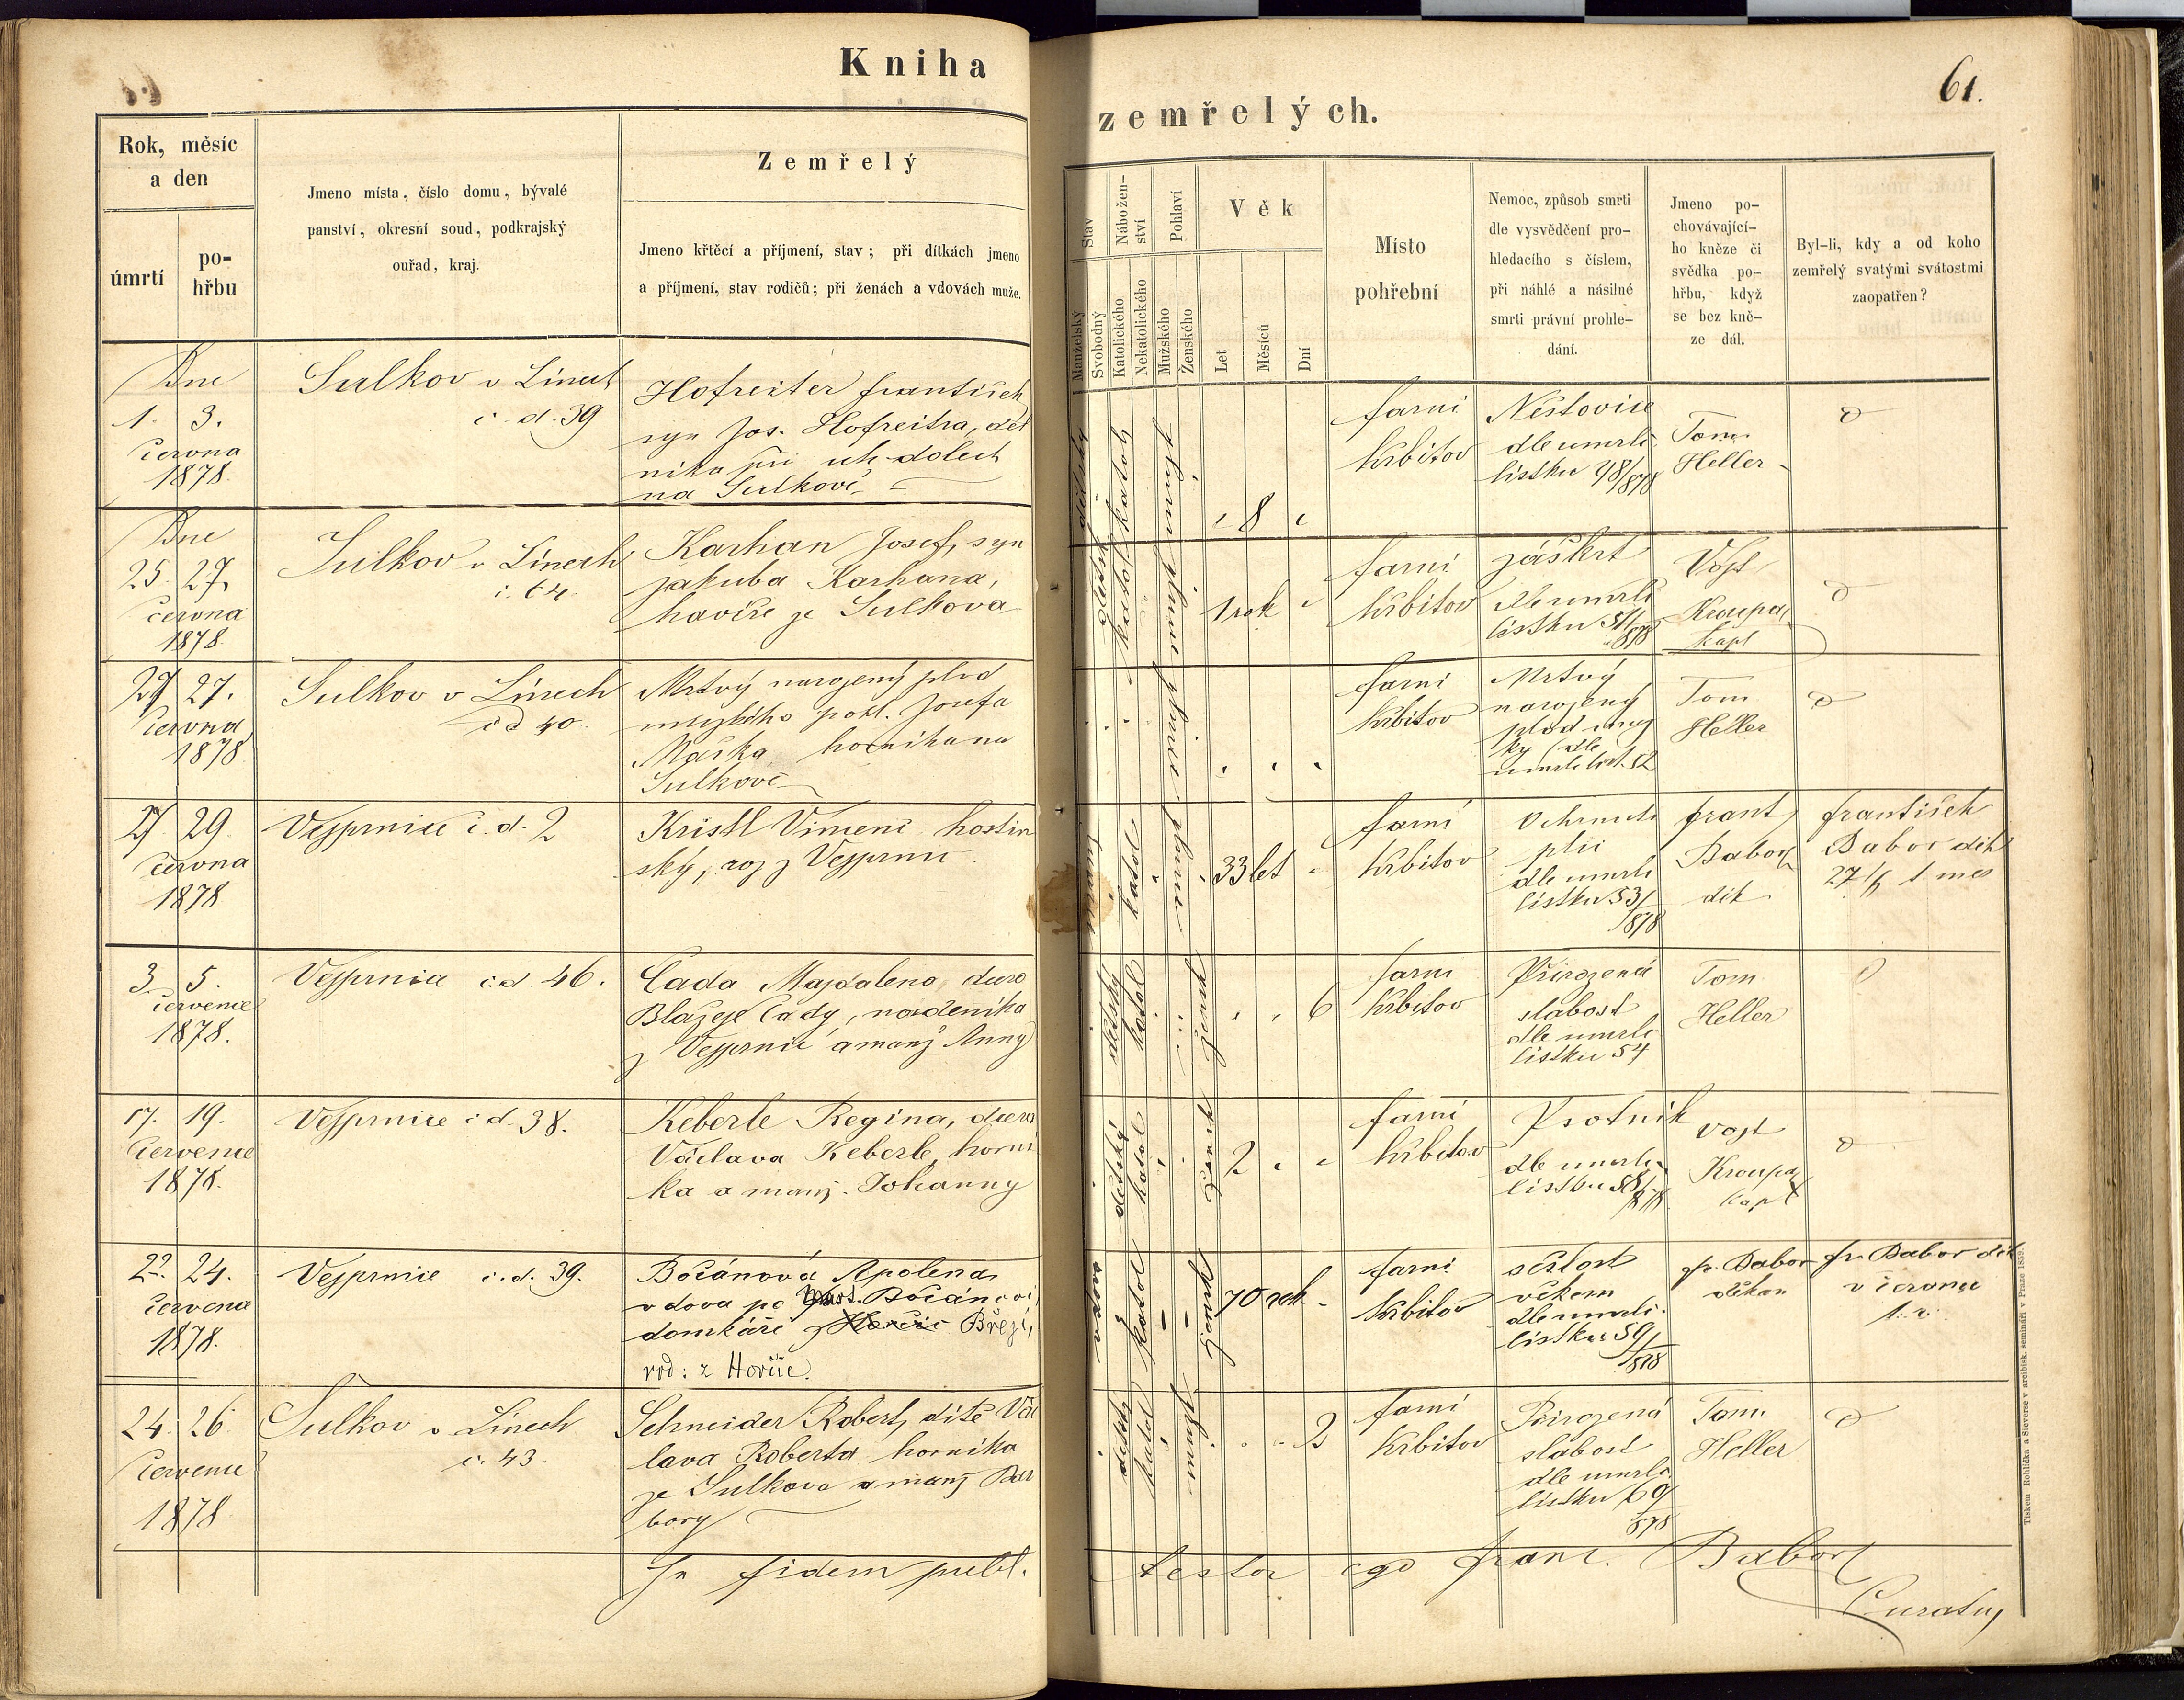 Kniha
zemřelých.
61.
Rok, měsíc
a den
úmrtí
po-
hřbu
Jmeno místa, číslo domu, bývalé
panství, okresní soud, podkrajský
ouřad, kraj.
Zemřelý
Jmeno křtěcí a příjmení, stav; při dítkách jmeno
a příjmení, stav rodičů; při ženách a vdovách muže.
Stav
Manželský
Svobodný
Nábožen-
ství
Katolického
Nekatolického
Pohlaví
Mužského
Ženského
Věk
Let
Měsíců
Dní
Místo
pohřební
Nemoc, způsob smrti
dle vysvědčení pro-
hledacího s číslem,
při náhlé a násilné
smrti právní prohle-
dání.
Jmeno po-
chovávající-
ho kněze či
svědka po-
hřbu, když
se bez kně-
ze dál.
Byl-li, kdy a od koho
zemřelý svatými svátostmi
zaopatřen?
Dne
1. 3.
června
1878.
Sulkov v Línech
č. d. 39
Hofreiter František
syn Jos. Hofreitra, děl
níka při uh. dolech
na Sulkově
dětský
katol
8
farní
hřbitov
Neštovice
dle umrlč.
lístku 48/878
Tom.
Heller
Dne
25. 27.
června
1878.
Sulkov v Línech
č. 64.
Karhan Josef, syn
Jakuba Karhana,
havíře ze Sulkova
dětský
katol
1 rok
farní
hřbitov
záškrt
dle umrlč
lístku 51/878
Vojt
Kroupa,
kapl
27 27.
června
1878
Sulkov v Línech
č d 40.
Mrtvý narozený plod
mužského pohl. Josefa
Maška horníka na
Sulkově
farní
hřbitov
Mrtvý
narozený
plod muž
ký (dle
umrlč list. 52
Tom
Heller
27 29.
června
1878
Vejprnice č. d. 2
Kristl Vincenc hostin
ský, roz z Vejprnic
katol
33 let
farní
hřbitov
Ochrnutí
plic
dle umrlč
lístku 53/
878
Frant
Babor
děk
František
Babor děk
27/6 t měs
3. 5.
července
1878.
Vejprnice č. d. 46.
Čada Majdalena, dcera
Blažeje Čady, nádeníka
z Vejprnic a manž Anny
dětský
katol
žensk
6
farní
hřbitov
Přirozená
slabost
dle umrlč
lístku 54
Tom
Heller
17. 19.
července
1878.
Vejprnice č d. 38.
Keberle Regina, dcera
Václava Keberle, horní
ka a manž. Johanny
dětský
katol
žensk
2
farní
hřbitov
Psotník
dle umrlč
lístku 58/878.
Vojt
Kroupa
kapl
22. 24.
července
1878.
Vejprnice č. d. 39.
Bočánová Apolena
vdova po Mart. Bočánovi
domkáři z Břeží,
rod: z Hořic.
vdova
katol
žensk
70 rok
farní
hřbitov
sešlost
věkem
dle umrlč.
lístku 59/
878
Fr. Babor
děkan
Fr. Babor děk
v červnu
t. r.
24. 26
července
1878
Sulkov v Línech
č. 43.
Schneider Robert, dítě Vác
lava Roberta horníka
ze Sulkova a manž Bar
bory
dětský
katol
mužs
2
farní
hřbitov
Přirozená
slabost
dle umrlč.
lístku 60/
878
Tom.
Heller
In fidem publ.
testor ego Franc. Babor
Curatus
Tiskem Rohlíčka a Sieverse v arcibisk. semináři v Praze 1859.